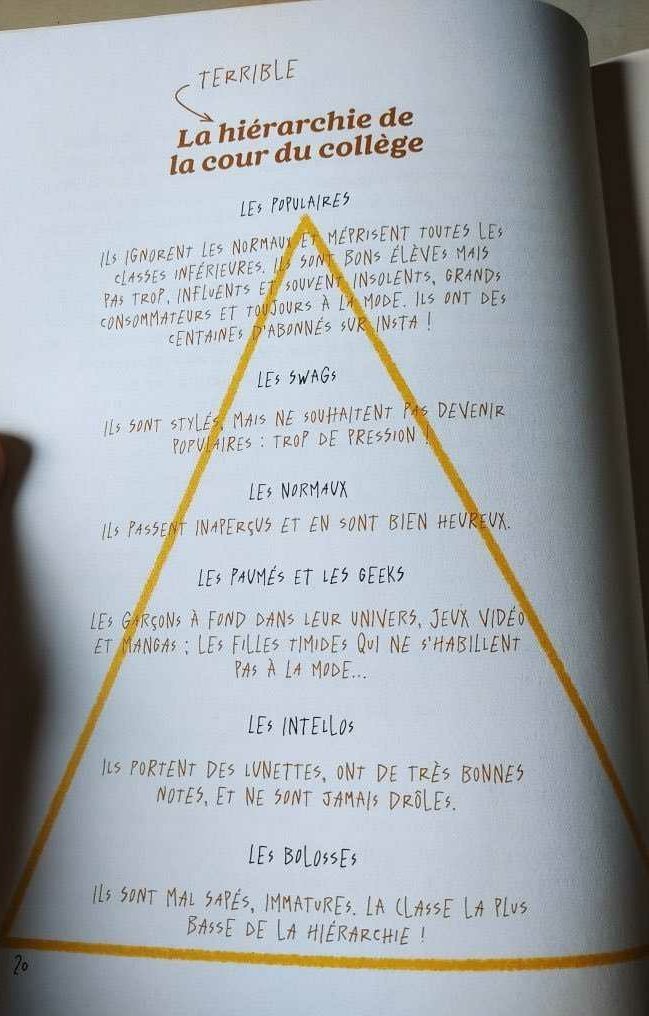 TERRIBLE
La hiérarchie de
la cour du collège
LES POPULAIRES
ILS IGNORENT LES NORMAUX ET MÉPRISENT TOUTES LES
CLASSES INFÉRIEURES. ILS SONT BONS ÉLÈVES MAIS
PAS TROP, INFLUENTS ET SOUVENT INSOLENTS, GRANDS
CONSOMMATEURS ET TOUJOURS À LA MODE. ILS ONT DES
CENTAINES D'ABONNÉS SUR INSTA !
LES SWAGS
ILS SONT STYLÉS, MAIS NE SOUHAITENT PAS DEVENIR
POPULAIRES : TROP DE PRESSION !
LES NORMAUX
ILS PASSENT INAPERÇUS ET EN SONT BIEN HEUREUX.
LES PAUMÉS ET LES GEEKS
LES GARÇONS À FOND DANS LEUR UNIVERS, JEUX VIDÉO
ET MANGAS ; LES FILLES TIMIDES QUI NE S'HABILLENT
PAS À LA MODE...
LES INTELLOS
ILS PORTENT DES LUNETTES, ONT DE TRÈS BONNES
NOTES, ET NE SONT JAMAIS DRÔLES.
LES BOLOSSES
ILS SONT MAL SAPÉS, IMMATURES. LA CLASSE LA PLUS
BASSE DE LA HIÉRARCHIE !
20